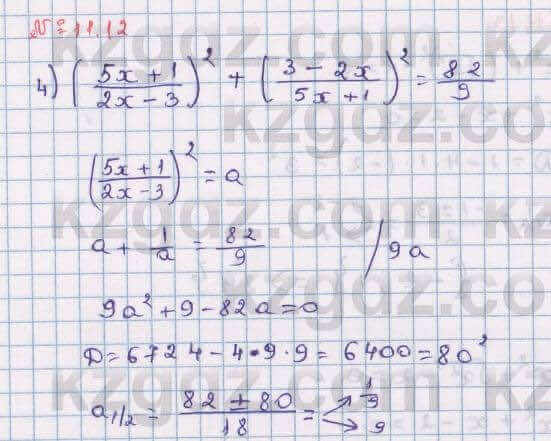 № 11.12
4) ((5x + 1)/(2x − 3))² + ((3 − 2x)/(5x + 1))² = 82/9
((5x + 1)/(2x − 3))² = a
a + 1/a = 82/9 / 9a
9a² + 9 − 82a = 0
D = 6724 − 4 • 9 · 9 = 6400 = 80²
a₁/₂ = (82 ± 80)/18 = 1/9 9